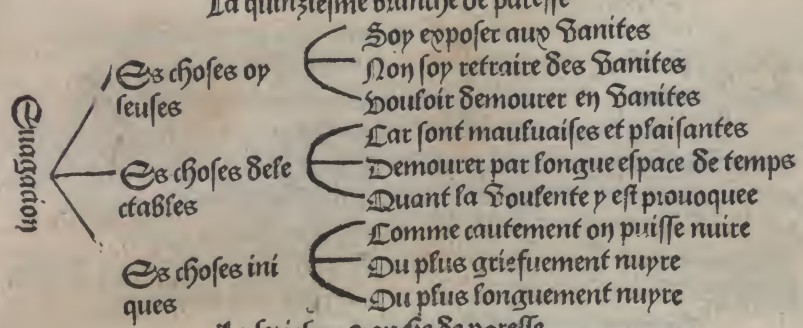 La quinziesme branche de paresse
Euagacion
Es choses oy
seuses
Soy exposer aux vanites
Non soy retraire des vanites
vouloir demourer en vanites
Es choses dele
ctables
Car sont mauluaises et plaisantes
Demourer par longue espace de temps
Quant la voulente y est prouoquee
Es choses ini
ques
Comme cautement on puisse nuire
Ou plus griefuement nuyre
Ou plus longuement nuyre
de paresse